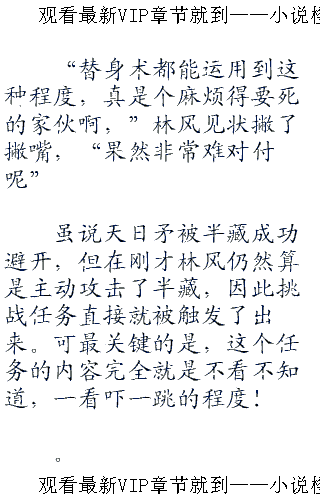 观看最新VIP章节就到——小说
“替身术都能运用到这
种程度，真是个麻烦得要死
的家伙啊，”林风见状撇了
撇嘴，“果然非常难对付
呢”
虽说天日矛被半藏成功
避开，但在刚才林风仍然算
是主动攻击了半藏，因此挑
战任务直接就被触发了出
来。可最关键的是，这个任
务的内容完全就是不看不知
道，一看吓一跳的程度！
。
观看最新VIP章节就到——小说